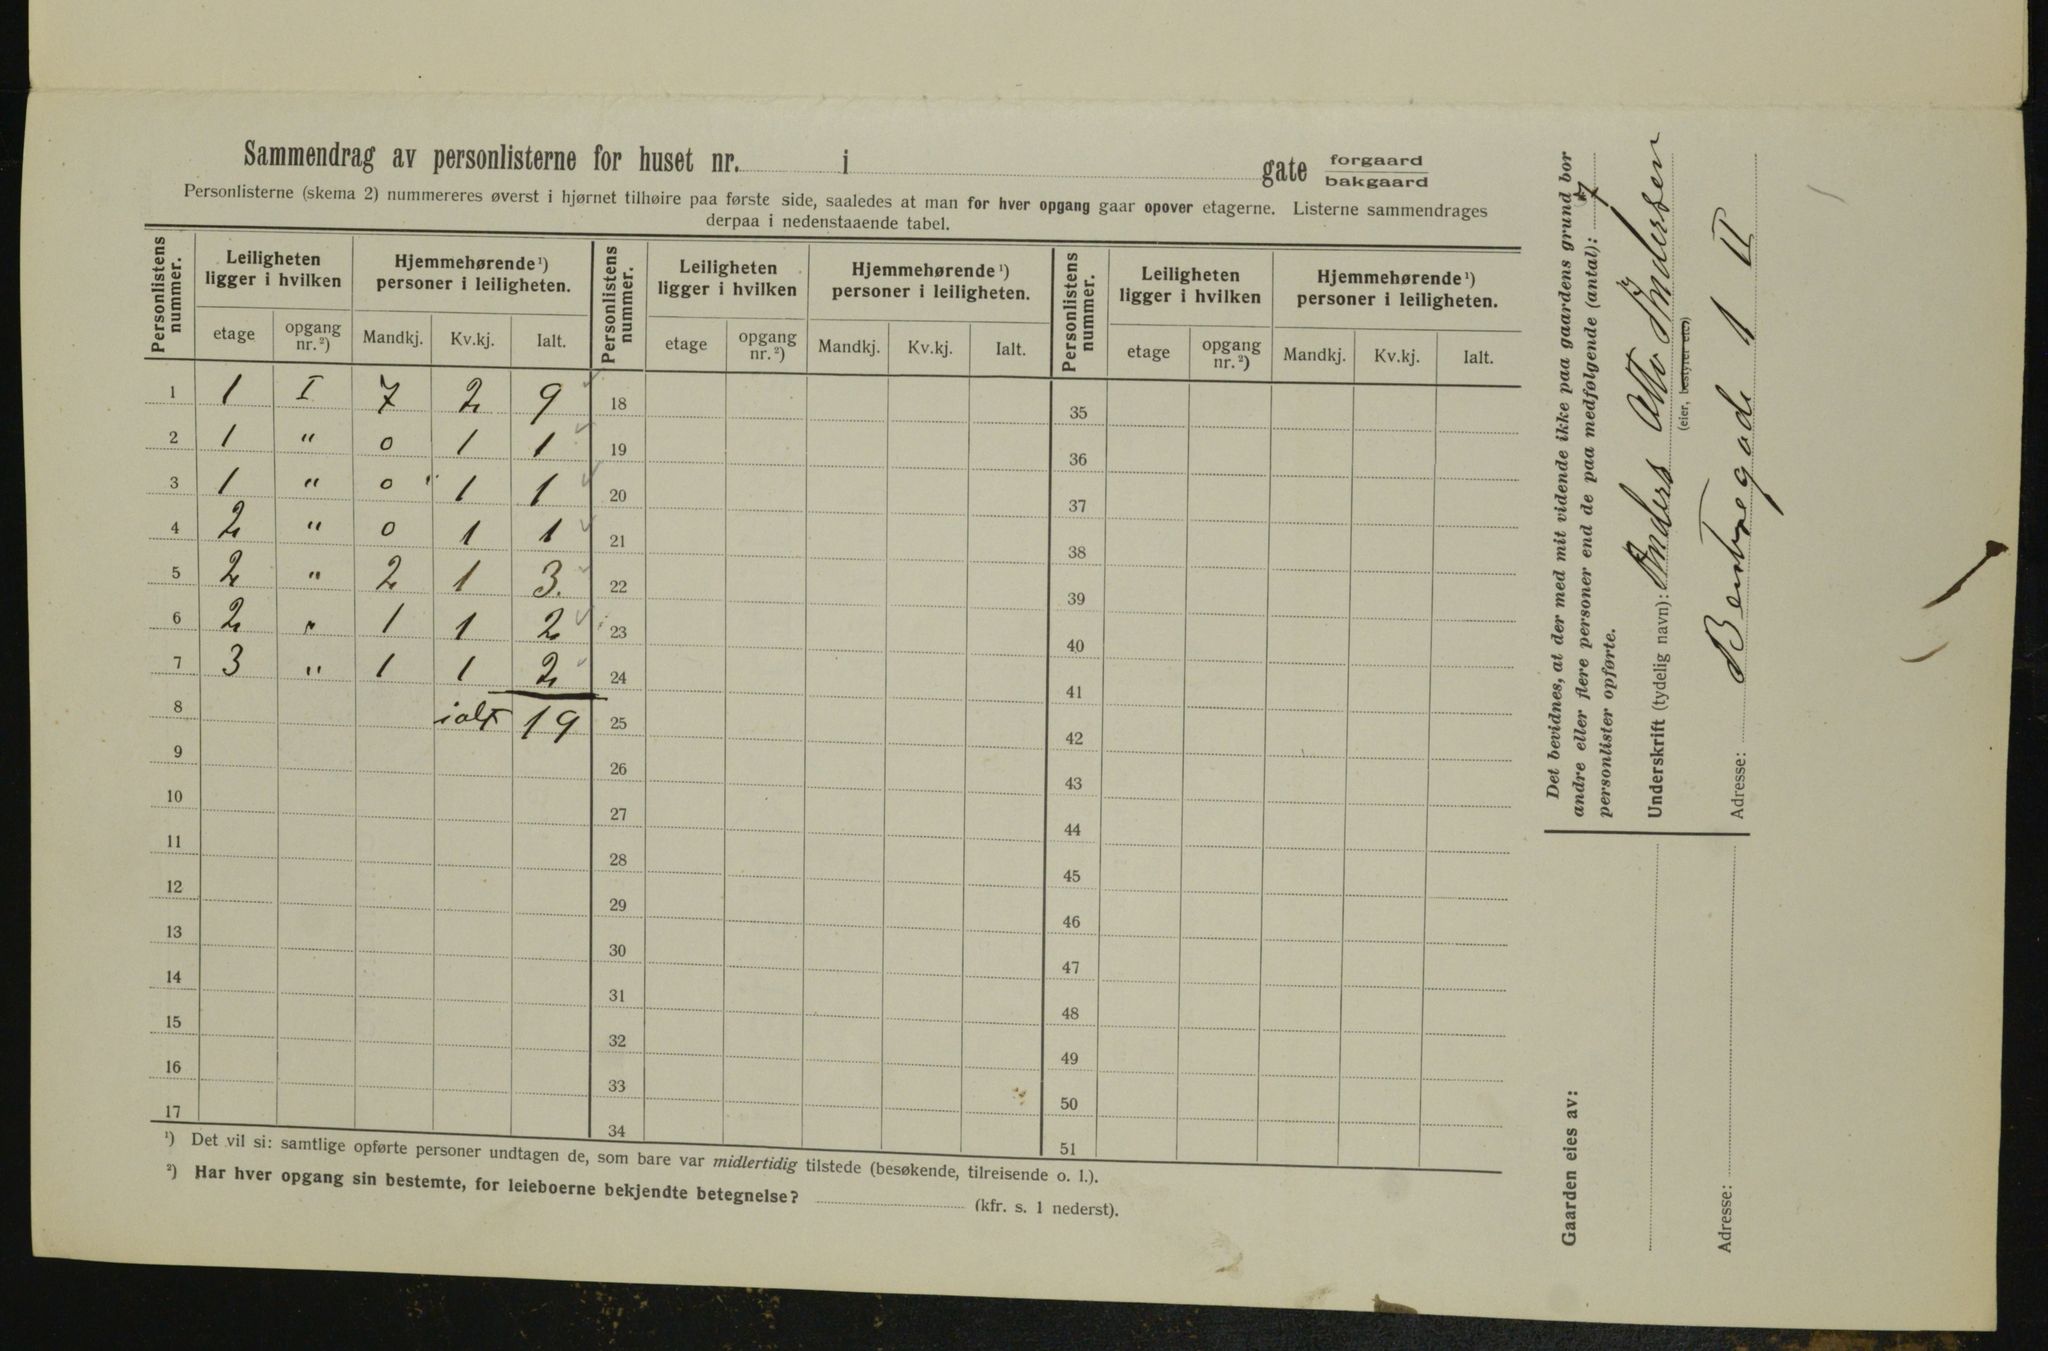 Sammendrag av personlisterne for huset nr. i gate forgaard
bakgaard
Personlisterne (skema 2) nummereres øverst i hjørnet tilhøire paa første side, saaledes at man for hver opgang gaar opover etagerne. Listerne sammendrages
derpaa i nedenstaaende tabel.
Personlistens nummer.
Leiligheten ligger i hvilken
Hjemmehørende¹) personer i leiligheten.
etage opgang nr.²) Mandkj. Kv.kj. Ialt.
Personlistens nummer.
Leiligheten ligger i hvilken
Hjemmehørende¹) personer i leiligheten.
etage opgang nr.²) Mandkj. Kv.kj. Ialt.
Personlistens nummer.
Leiligheten ligger i hvilken
Hjemmehørende¹) personer i leiligheten.
etage opgang nr.²) Mandkj. Kv.kj. Ialt.
1 1 I 7 2 9 18 35
2 1 " 0 1 1 19 36
3 1 " 0 1 1 20 37
4 2 " 0 1 1 21 38
5 2 " 2 1 3. 22 39
6 2 " 1 1 2 23 40
7 3 " 1 1 2 24 41
8 ialt 19 25 42
9 26 43
10 27 44
11 28 45
12 29 46
13 30 47
14 31 48
15 32 49
16 33 50
17 34 51
¹) Det vil si: samtlige opførte personer undtagen de, som bare var midlertidig tilstede (besøkende, tilreisende o. l.).
²) Har hver opgang sin bestemte, for leieboerne bekjendte betegnelse? (kfr. s. 1 nederst).
Det bevidnes, at der med mit vidende ikke paa gaardens grund bor
andre eller flere personer end de paa medfølgende (antal): 7
personlister opførte.
Underskrift (tydelig navn): Anders Otto Andersen
(eier, bestyrer etc.)
Adresse: Bentsegade 1 II
Gaarden eies av:
Adresse: